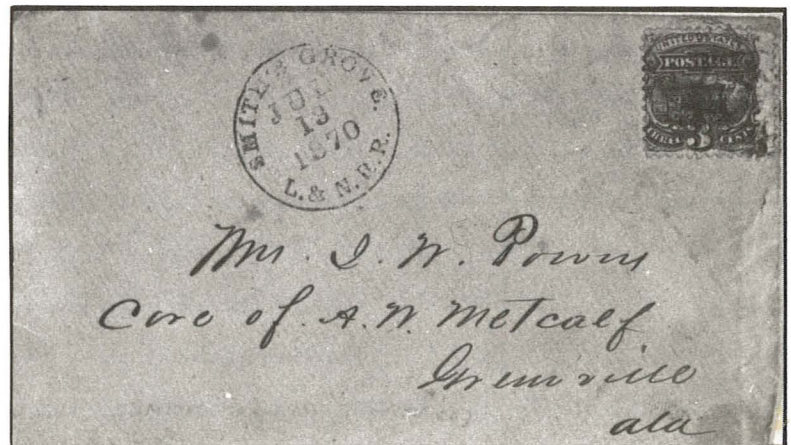 SMITH'S GROVE.
JUL
13
1870
L. & N. R. R.
UNITED STATES
POSTAGE
THREE 3 CENTS
Mr. I. W. Powers
Care of A. W. Metcalf
Greenville
Ala